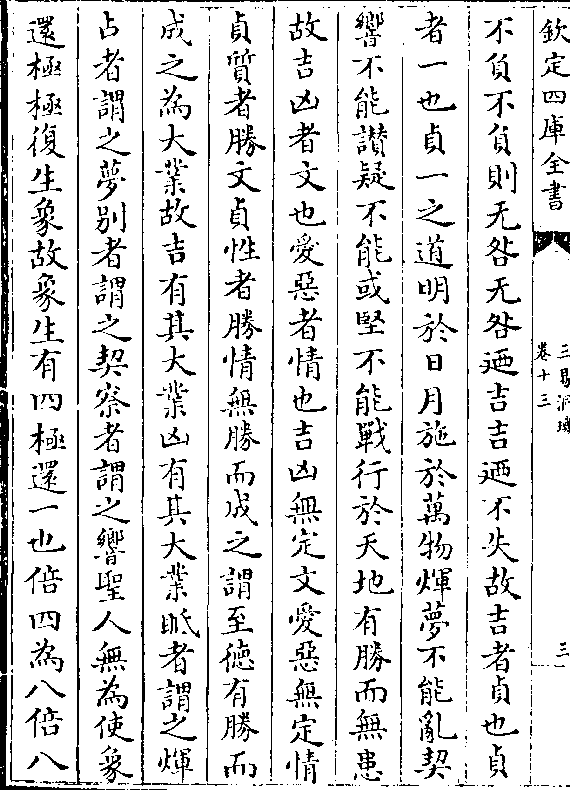 欽定四庫全書
三易洞璣
卷十三
三
不負不負則无咎无咎迺吉吉迺不失故吉者貞也貞
者一也貞一之道明於日月施於萬物煇夢不能亂契
響不能讃疑不能或堅不能戰行於天地有勝而無患
故吉凶者文也愛惡者情也吉凶無定文愛惡無定情
貞質者勝文貞性者勝情無勝而成之謂至徳有勝而
成之為大業故吉有其大業凶有其大業眡者謂之煇
占者謂之夢別者謂之契察者謂之響聖人無為使象
還極極復生象故象生有四極還一也倍四為八倍八